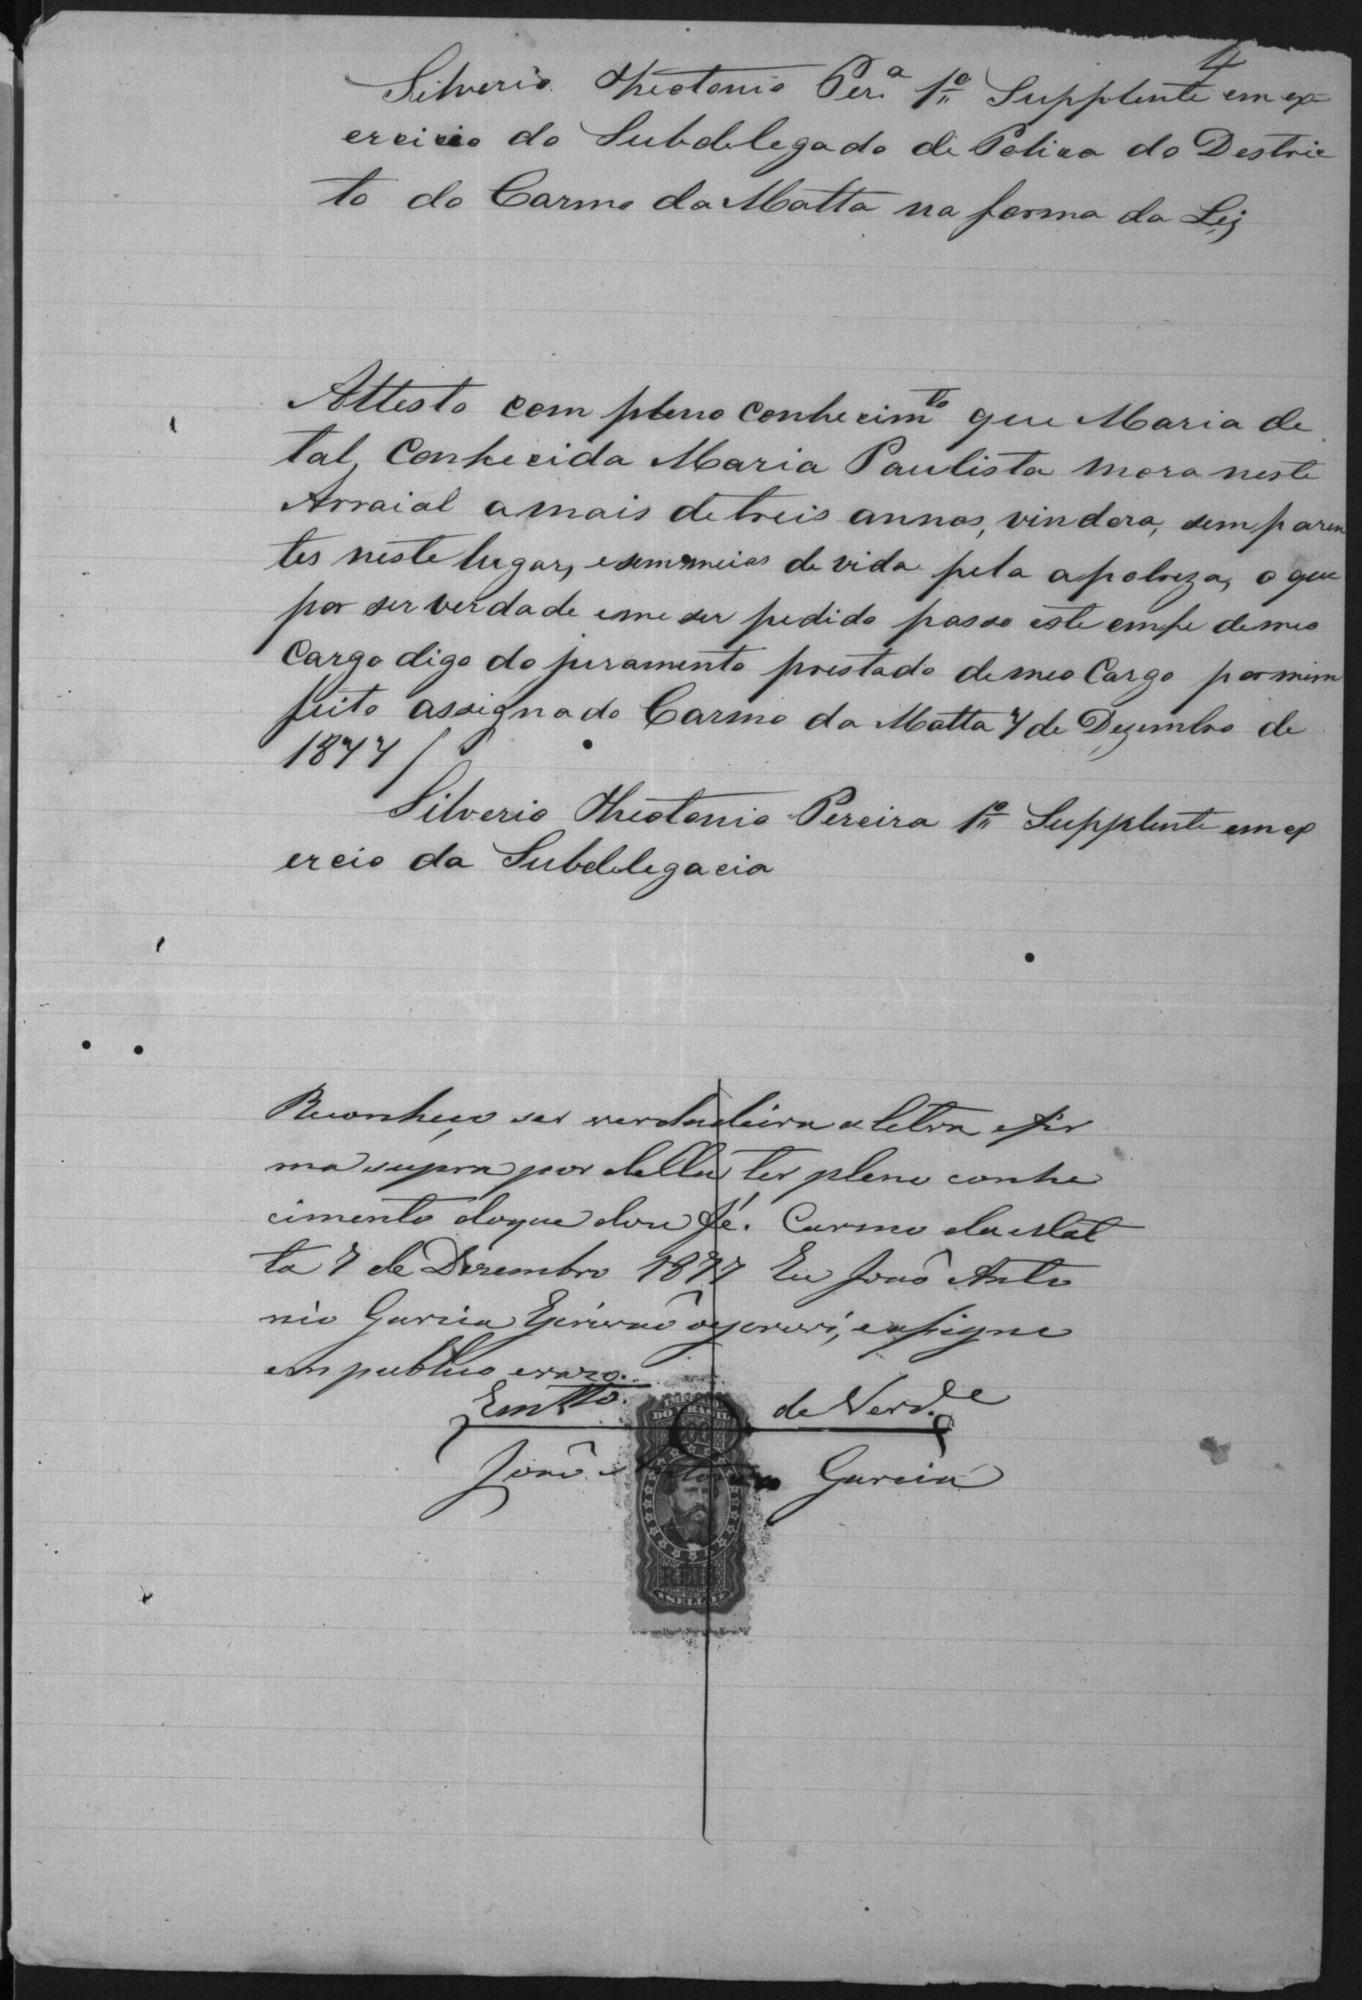 4
Silverio Theotonio Per.ª 1º Supplente em ex=
ercicio do Subdelegado de Policia do Destric
to do Carmo da Matta na forma da Lei
Attesto com pleno conhecimto que Maria de
tal, Conhecida Maria Paulista mora neste
Arraial a mais de treis annos, vindora, sem paren
tes neste lugar, e sem meias de vida pela a pobreza, o que
por ser verdade e me ser pedido passo este em fe de meo
Cargo digo do juramento prestado de meo Cargo por mim
feito assignado Carmo da Matta 7 de Dezembro de
1877 /
Silverio Theotonio Pereira 1º Supplente em ex
ercio da Subdelegacia
Reconheço ser verdadeira a letra e fir
ma supra por della ter pleno conhe
cimento do que dou fé. Carmo da Mat
ta 7 de Dezembro 1877 Eu João Anto
nio Garcia Escrivão o escrevi, e assigno
em publico e razo.
Em Tto. de Verd.e
João Antonio Garcia
DO BRASIL
REIS
SELLO